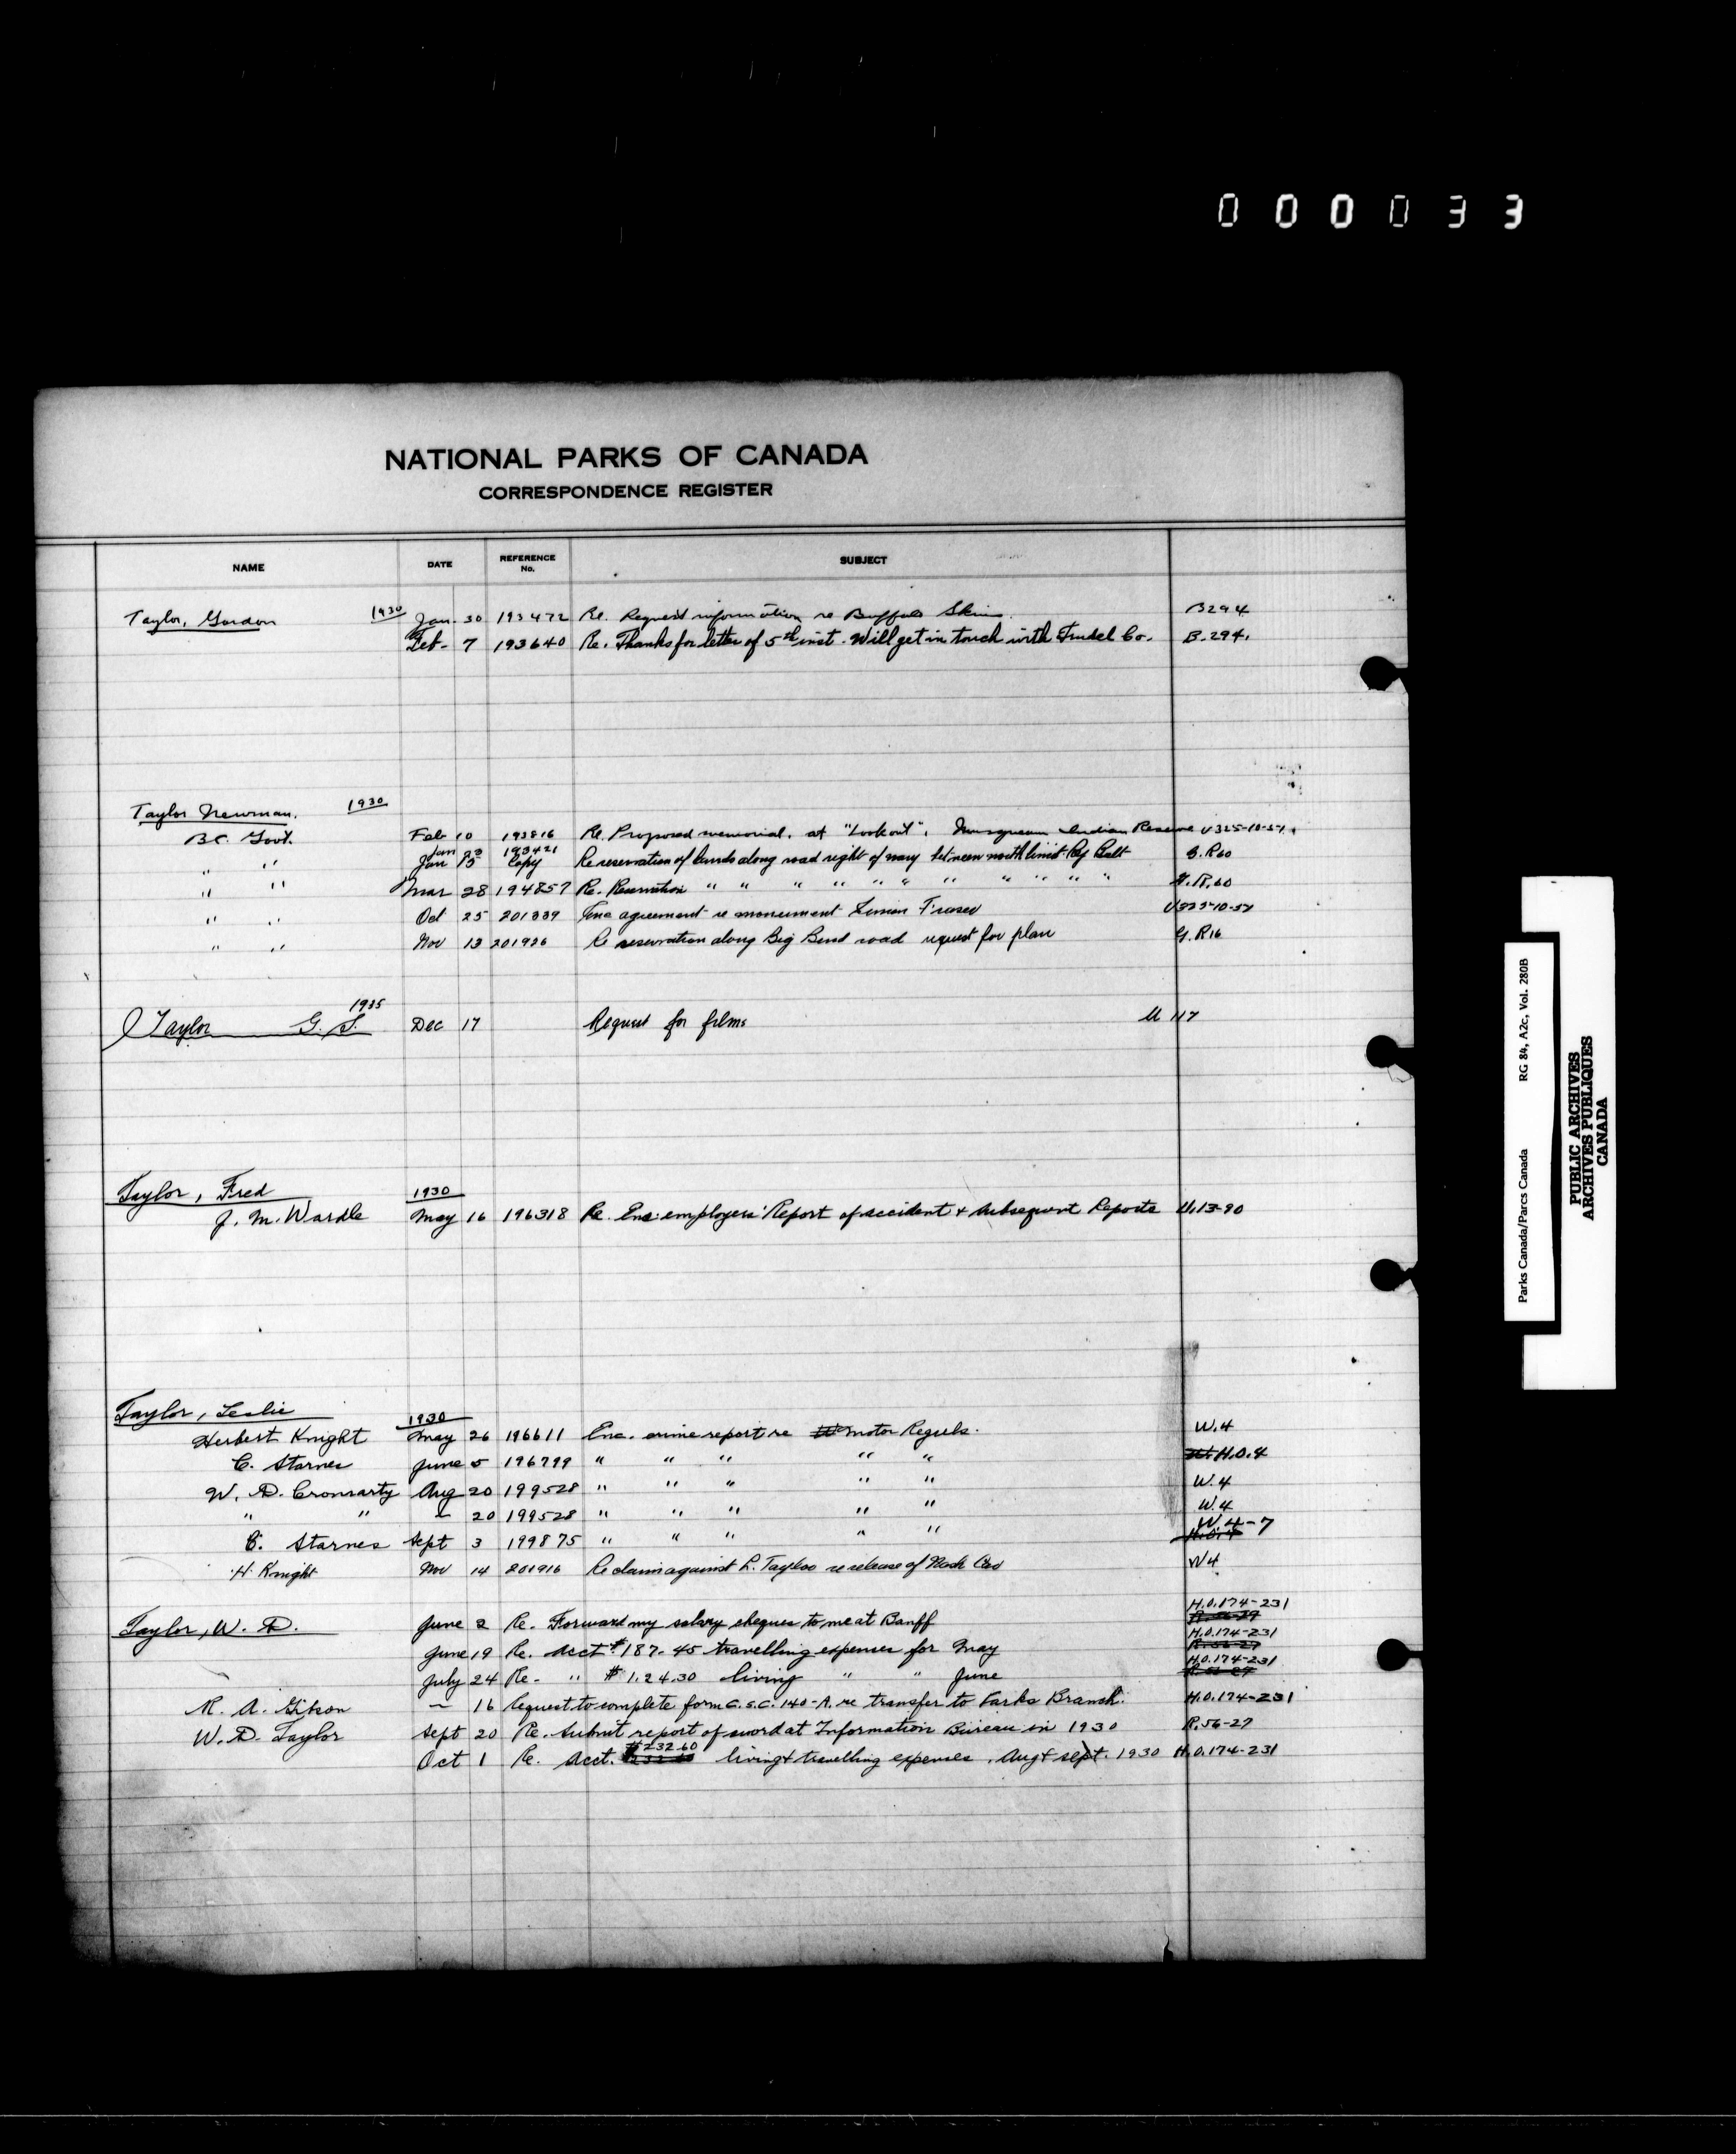 000033
NATIONAL PARKS OF CANADA
CORRESPONDENCE REGISTER
NAME DATE REFERENCE No. SUBJECT
Taylor, Gordon 1930 Jan. 30 193472 Re. Request information re Buffalo Skins. B294
Feb- 7 193640 Re. Thanks for letter of 5th inst. Will get in touch with Trudel Co. B.294.
Taylor Newman. 1930
B.C. Govt. Feb 10 193816 Re. Proposed memorial. at "Lookout". Musqueam Indian Reserve U325-10-57.
Jan 23 193421
" " Jan 15 Copy Re reservation of lands along road right of way between north limit Rly Belt G.R60
" " Mar 28 194857 Re. Reservation " " " " " " " " " " " G.R.60
" " Oct 25 201339 Enc agreement re monument Simon Fraser U325-10-57
" " Nov 13 201926 Re reservation along Big Bend road request for plan G.R16
Taylor G. S. 1935 Dec 17 Request for films U 117
Taylor, Fred 1930
J. M. Wardle May 16 196318 Re. Enc employers' Report of accident & subsequent Reports U.13-90
Taylor, Leslie 1930
Herbert Knight May 26 196611 Enc. crime report re motor Reguls. W.4
C. Starnes June 5 196799 " " " " " W. H.O.4
W. D. Cromarty Aug 20 199528 " " " " " W.4
" " – 20 199528 " " " " " W.4
C. Starnes Sept 3 199875 " " " " " H.O.4 W.4-7
H. Knight Nov 14 201916 Re claim against L. Taylor re release of Nash Car W4
Taylor, W. D. June 2 Re. Forward my salary cheques to me at Banff R.56-27 H.O.174-231
June 19 Re. Acct $187.45 travelling expenses for May R.56-27 H.O.174-231
July 24 Re- " $124.30 living " " June R.56-27 H.O.174-231
R. A. Gibson – 16 Request to complete form C.S.C. 140-A. re transfer to Parks Branch. H.O.174-231
W. D. Taylor Sept 20 Re. Submit report of work at Information Bureau in 1930 R.56-27
Oct 1 Re. Acct. $232.60 living & travelling expenses, Aug & Sept. 1930 H.O.174-231
Parks Canada/Parcs Canada RG 84, A2c, Vol. 280B
PUBLIC ARCHIVES
ARCHIVES PUBLIQUES
CANADA